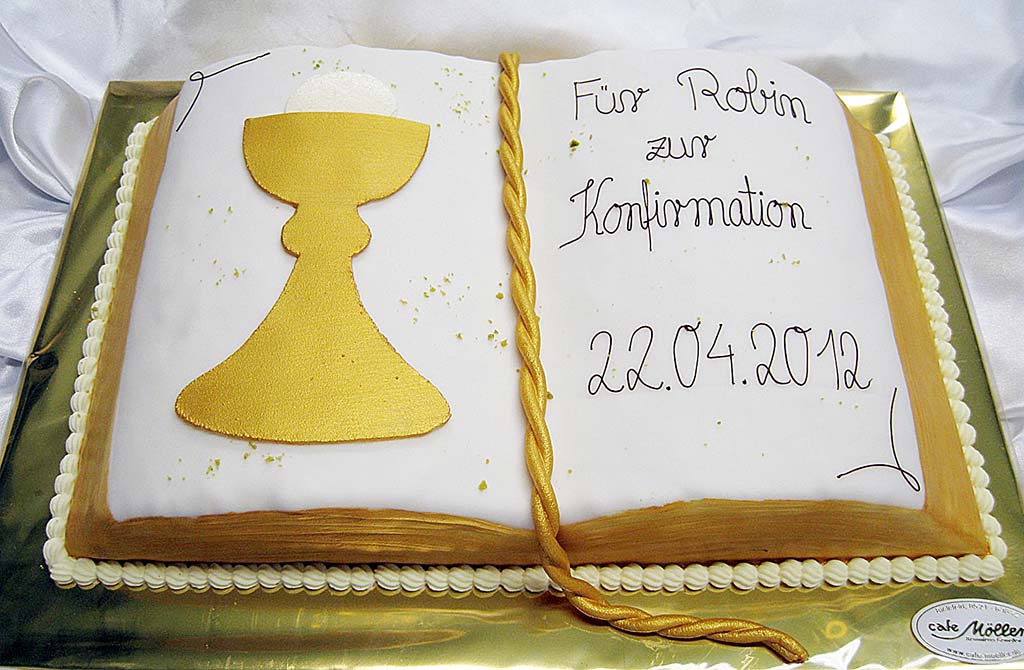 Für Robin
zur
Konfirmation
22.04.2012
cafe Möller